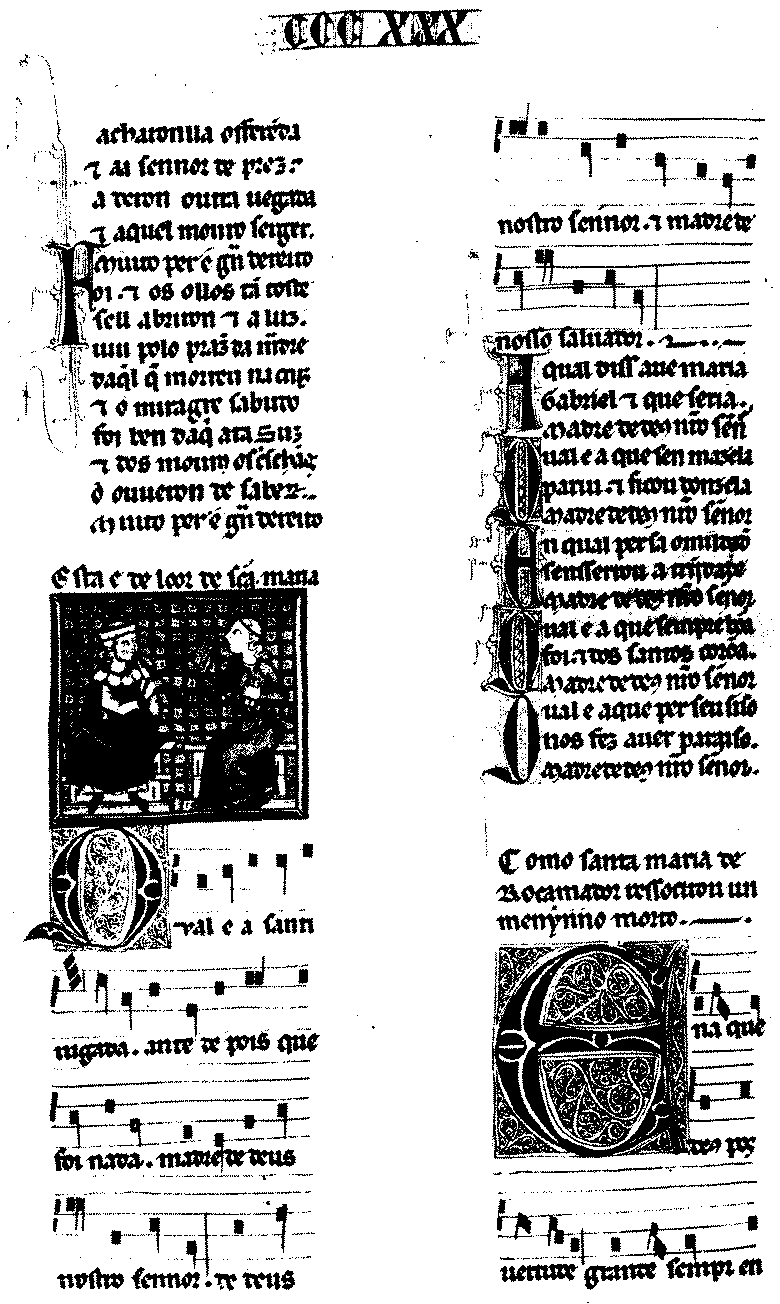 CCC XXX
achatonna offerēda
⁊ ai sennor de prez.
a deron outra uegada
⁊ aquel mouro seiger.
Muito per é gñ dereito
Foi. ⁊ os ollos tã toste
seu abriron ⁊ a luz.
uiu polo praz da mãdre
daq̄l q̄ morreu na cruz
⁊ o miragre sabudo
foi ben daq̄
⁊ dos mouros
ouueron de saber.
Muito per é gñ dereito
Esta e de loor de sc̃a maria
Qual e a santi
uigada. ante ⁊ pois que
foi nada. madre de deus
nostro sennor. de deus
nostro sennor. ⁊ madre de
nosso saluador.
A qual diss aue maria
Gabriel ⁊ que seria.
Madre de deꝯ nr̃o señ
Qual e a que sen mazela
pariu. ⁊ ficou donzela
Madre de deꝯ nr̃o señor
En qual per sa omildade
Madre de deꝯ nr̃o señor
Qual e a que sempre
foi. ⁊ dos santos corõa.
Madre de deꝯ nr̃o señor
Qual e a que per seu siso
nos fez auer parayso.
Madre de deꝯ nr̃o señor.
Como santa maria de
Rocamador ressocitou un
menynno morto.
Ena que
deꝯ pos
uertude grande sempr en